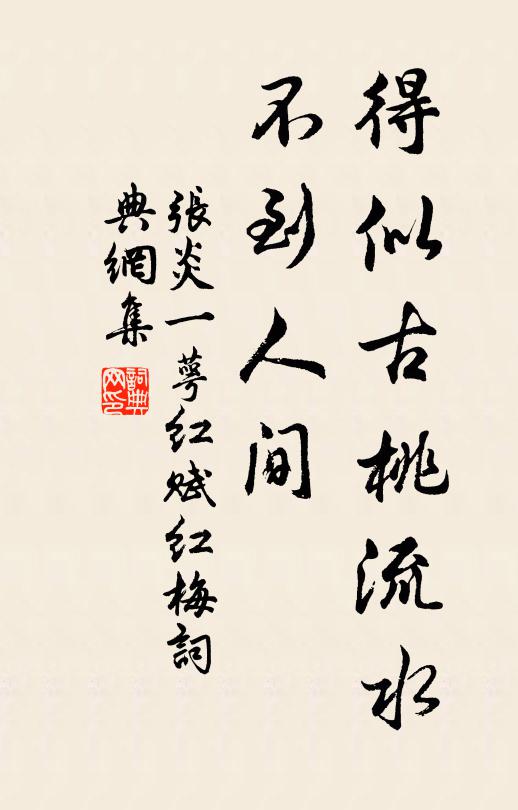 得似古桃流水
不到人间
張炎一萼红赋红梅詞
典網集
詞典
网印